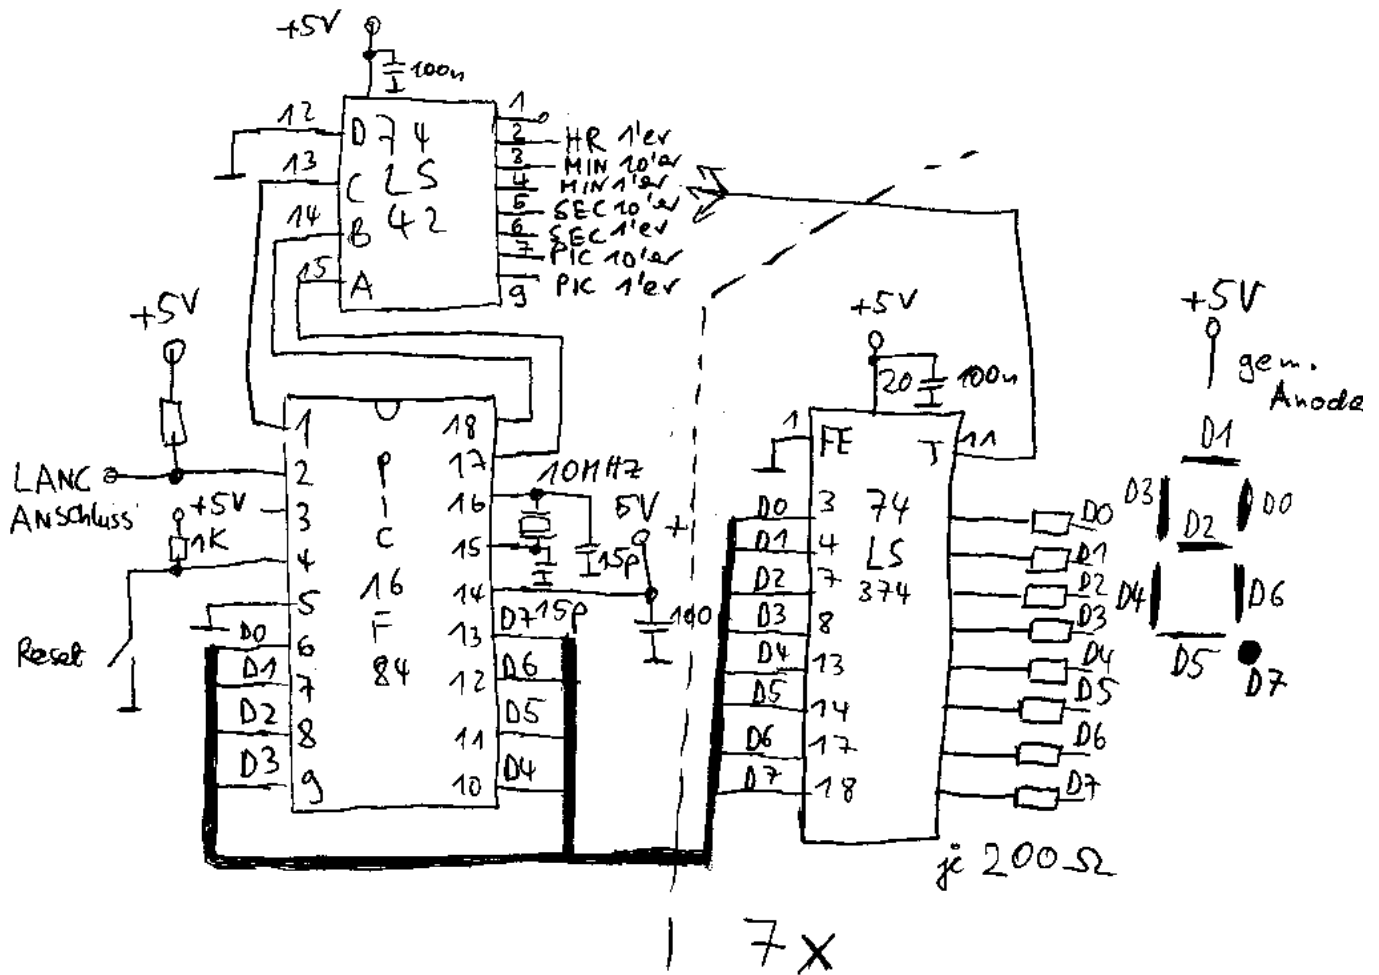 +5V
100n
12
D 74
13
C LS
14
B 42
15
A
1
2 HR 1'er
3 MIN 10'er
4 MIN 1'er
5 SEC 10'er
6 SEC 1'er
7 PIC 10'er
9 PIC 1'er
+5V
LANC
Anschluss
+5V
1K
Reset
1
2
3
4
5
D0 6
D1 7
D2 8
D3 9
P
I
C
16
F
84
18
17
16
15
14
13 D7
12 D6
11 D5
10 D4
10MHZ
15p
15p
5V +
100
+5V
20
100n
1 FE
T 11
74
LS
374
D0 3
D1 4
D2 7
D3 8
D4 13
D5 14
D6 17
D7 18
D0
D1
D2
D3
D4
D5
D6
D7
je 200Ω
+5V
gem.
Anode
D1
D3
D0
D2
D4
D6
D5
D7
7x